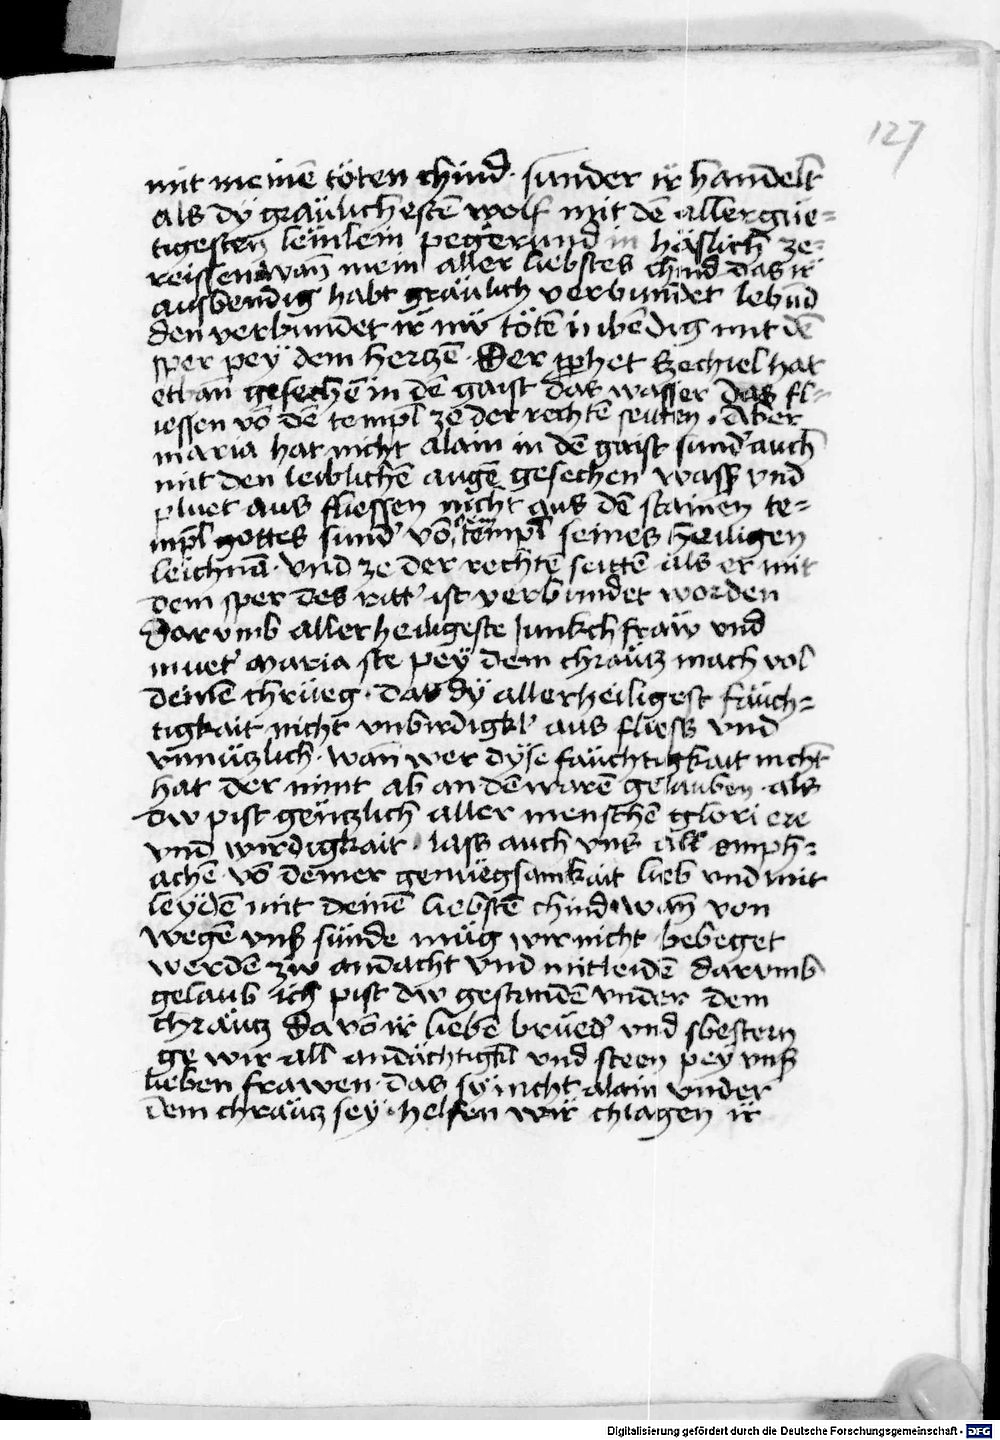 127
mit meinē töten chind · sunder ir handelt
als dÿ gräulichestē wolf mit dē allergüe=
tigesten leinlein pegerund in häslich ze=
reissend wan̄ mein aller liebstes chind das ir
ausbendig habt gräulich verbundet lebnd
den verbundet ir nw̄ tötē inbēdig mit dē
sper peÿ dem hertzē · Der pphet Ezechiel hat
etban gesechē in dē gaist das wasser das fl=
iessen vō dē templ ze der rechtē seitten · Aber
maria hat nicht alain in dē gaist sund' auch
mit den leiblichē augē gesechen wass' vnd
pluet aus fliessen nicht aus dē stainen te=
mpl gottes sund' vō dem templ seines heiligen
leichnā · vnd ze der rechtē seittē als er mit
dem sper des ritt' ist verbundet worden
Darvmb allerheiligeste junkchfraw vnd
muet' maria ste peÿ dem chräutz mach vol
deinē chrüeg · das dÿ allerheiligest fäuch=
tigkait nicht vnbirdigkl' aus fliess vnd
vnnützlich · wan̄ wer dÿse fäuchtigkait nicht
hat der nimt ab an dē warē gelauben · als
dw pist gentzlich aller menschē glori ere
vnd wirdigkait · lass auch vns all emph=
achē vō deiner genuegsamkait lieb vnd mit
leydē mit deinē liebstē chind wan̄ von
wegē vnss' sünde müg wir nicht bebeget
werdē zw andacht vnd mitleidē darvmb
gelaub ich pist dw gestandē vnder dem
chräutz Da vō ir liebē brüed' vnd sbestern
ge wir all andächtigkl' vnd steen peÿ vnss'
lieben frawen · das sÿ nicht alain vnder
dem chräutz seÿ · helfen wir chlagen ir
Digitalisierung gefördert durch die Deutsche Forschungsgemeinschaft - DFG